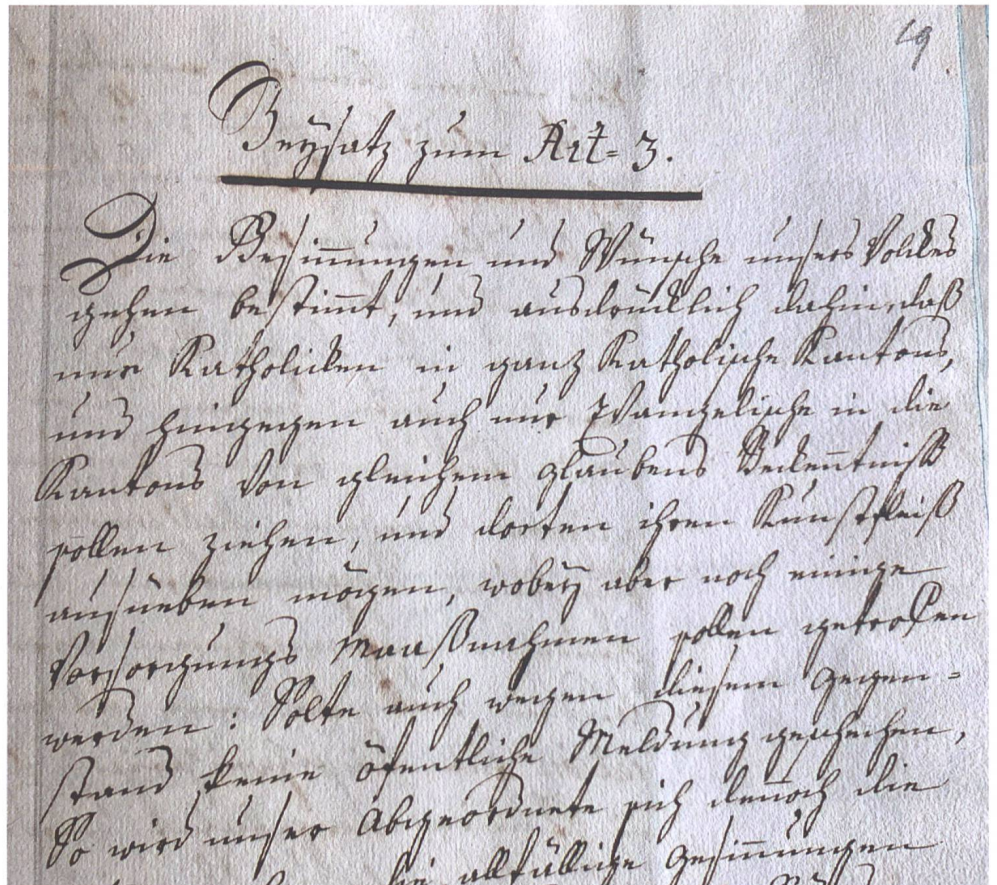 19
Beÿsatz zum Art= 3.
Die Gesinnungen und Wünsche unsers Volckes
gehen bestimt, und ausdrücklich dahin, daß
nur Katholicken in ganz Katholische Kantons,
und hingegen auch nur Evangelische in die
Kantons von gleichem glaubens Bekenntniß
sollen ziehen, und dorten ihren Kunstfleiß
ausüeben mögen, wobeÿ aber noch einige
Vorsorgungs Maaßnahmen sollen getrofen
werden: Solte auch wegen diesem Gegen=
stand keine öfentliche Meldung geschehen,
So wird unser Abgeordnete sich dennoch die
allfällige Gesinnungen